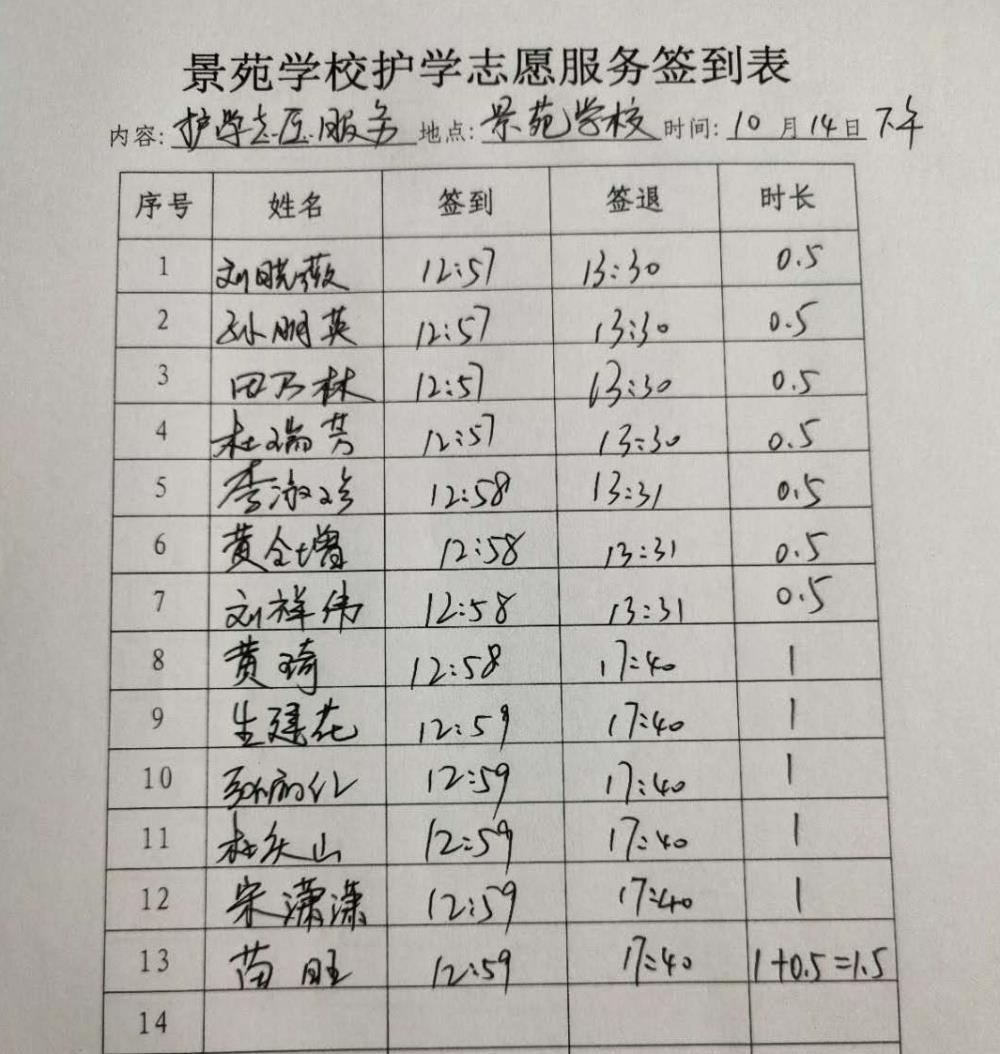 景苑学校护学志愿服务签到表
内容: 护学志愿服务 地点: 景苑学校 时间: 10 月 14 日 下午
序号 姓名 签到 签退 时长
1 刘晓薇 12:57 13:30 0.5
2 孙朋英 12:57 13:30 0.5
3 田乃林 12:57 13:30 0.5
4 杜瑞芳 12:57 13:30 0.5
5 李淑珍 12:58 13:31 0.5
6 黄全增 12:58 13:31 0.5
7 刘祥伟 12:58 13:31 0.5
8 黄琦 12:58 17:40 1
9 生建花 12:59 17:40 1
10 12:59 17:40 1
11 杜庆山 12:59 17:40 1
12 宋潇潇 12:59 17:40 1
13 苗旺 12:59 17:40 1+0.5=1.5
14